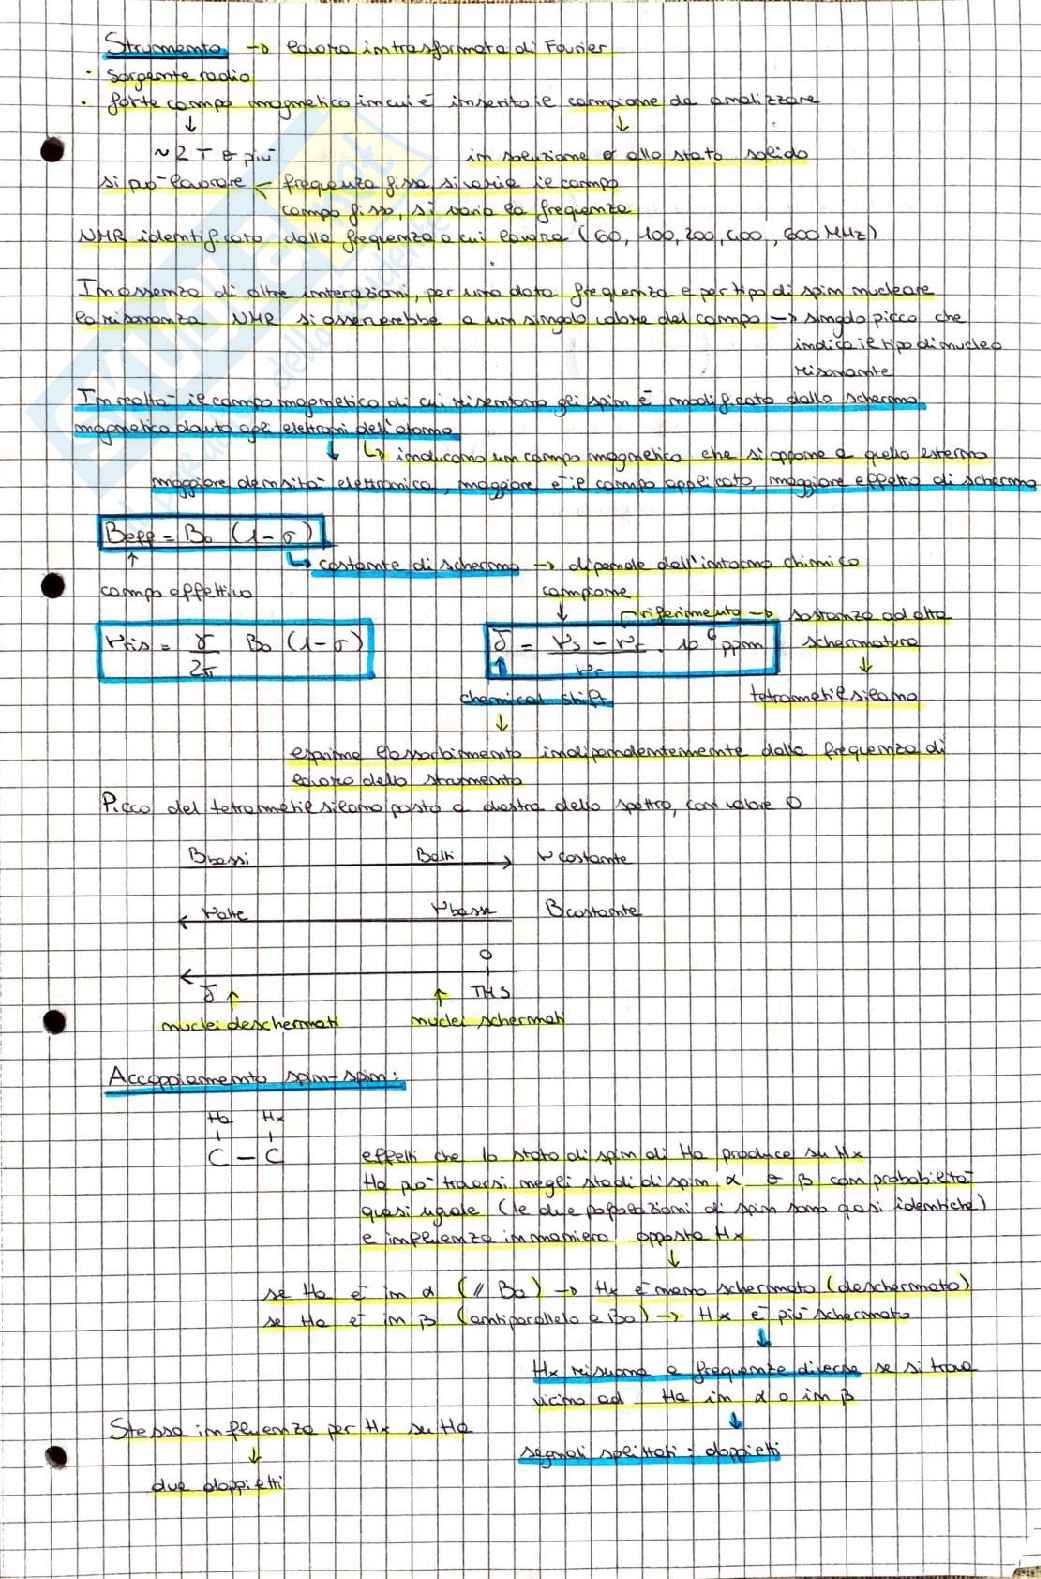 Strumento → lavora in trasformata di Fourier
· sorgente radio
· forte campo magnetico in cui è inserito il campione da analizzare
↓ ↓
~ 2 T e più in soluzione o allo stato solido
si può lavorare < frequenza fissa, si varia il campo
campo fisso, si varia la frequenza
NMR identificato dalla frequenza a cui lavora (60, 100, 200, 400, 600 MHz)
In assenza di altre interazioni, per una data frequenza e per tipo di spin nucleare
la risonanza NMR si osserverebbe a un singolo valore del campo → singolo picco che
indica il tipo di nucleo
risonante
In realtà il campo magnetico di cui risentono gli spin è modificato dallo schermo
magnetico dauto agli elettroni dell'atomo
↓ ↳ inducono un campo magnetico che si oppone a quello esterno
maggiore densità elettronica, maggiore è il campo applicato, maggiore effetto di schermo
Beff = B₀ (1-σ)
↑ ↳ costante di schermo → dipende dall'intorno chimico
campo effettivo campione
↓ riferimento → sostanza ad alta
νris = γ/2π B₀ (1-σ) δ = νs - νr / νr · 10⁶ ppm schermatura
↑ ↓
chemical shift tetrametilsilano
↓
esprime l'assorbimento indipendentemente dalla frequenza di
lavoro dello strumento
Picco del tetrametilsilano posto a destra dello spettro, con valore 0
Bbassi Balti → ν costante
← ν alte ν basse B costante
0
←
δ ↑ ↑ TMS
nuclei deschermati nuclei schermati
Accoppiamento spin-spin:
Ha Hx
C — C effetti che lo stato di spin di Ha produce su Hx
Ha può trovarsi negli stadi di spin α e β con probabilità
quasi uguale (le due popolazioni di spin sono quasi identiche)
e influenza in maniera opposta Hx
↓
se Ha è in α (// B₀) → Hx è meno schermato (deschermato)
se Ha è in β (antiparallelo a B₀) → Hx è più schermato
↓
Hx risuona a frequenze diverse se si trova
vicino ad Ha in α o in β
Stessa influenza per Hx su Ha ↓
↓ segnali splittati: doppietti
due doppietti